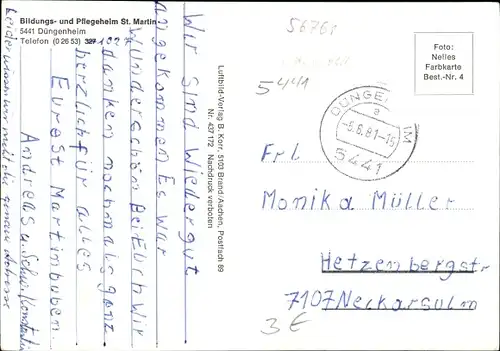 Bildungs- und Pflegeheim St. Martin
5441 Düngenheim
Telefon (0 26 53) 
Wir sind Wieder gut
angekommen Es war
Wunderschön Bei Euch Wir
danken nochmals ganz
herzlich für alles
Eurest Martinbuben.
Andreas u. Schw. Konstantia
Leider wissen wir nicht die genaue Adresse
Luftbild-Verlag B. Korr, 5103 Brand/Aachen, Postfach 69
Nr. 437 172 Nachdruck verboten
5676r
5441
Foto:
Nelles
Farbkarte
Best.-Nr. 4
a
-5.6.81-15
5441
Frl.
Monika Müller
Hetzenbergstr
7107 Neckarsulm
3€